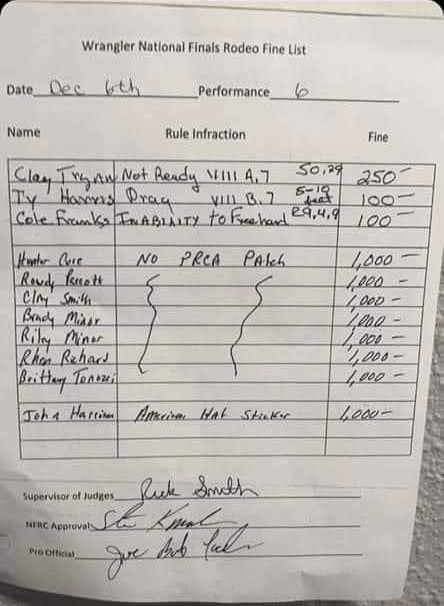 Wrangler National Finals Rodeo Fine List
Date Dec 6th Performance 6
Name Rule Infraction Fine
Clay Tryan Not Ready VIII A,7 50,29 250-
Ty Harris Drag VIII B.7 5-10 feet 100-
Cole Franks INABILITY to Freehand 29,4,9 100-
Hunter Cure NO PRCA PAtch 1,000-
Rowdy Parrott 1,000-
Clay Smith 1,000-
Brady Minor 1,000-
Riley Minor 1,000-
Rhen Richard 1,000-
Brittany Tonozzi 1,000-
John Harrison American Hat Sticker 1,000-
Supervisor of Judges Rick Smith
NFRC Approval
Pro Official Joe Bob